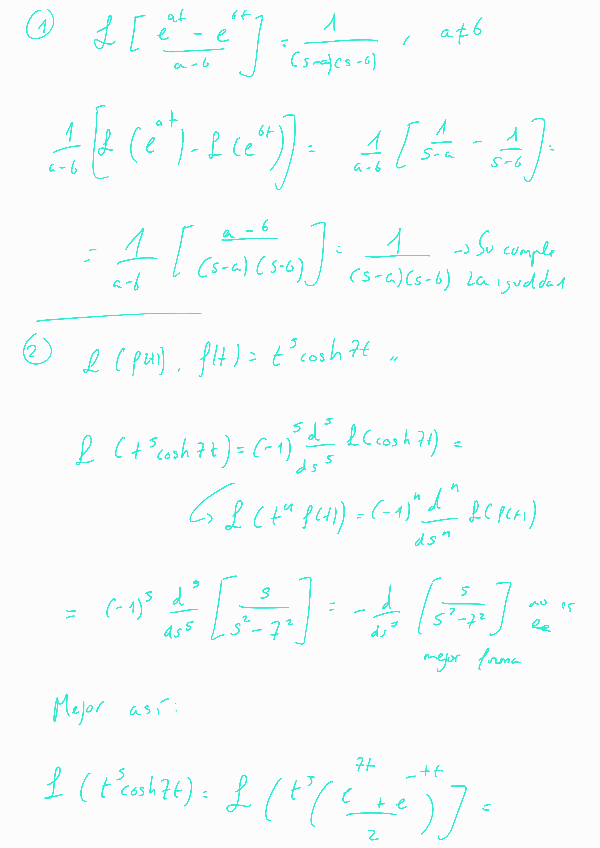 ① ℒ [ (e^{at} - e^{bt}) / (a-b) ] = 1 / ((s-a)(s-b)) , a≠b
1/(a-b) [ ℒ (e^{at}) - ℒ (e^{bt}) ] = 1/(a-b) [ 1/(s-a) - 1/(s-b) ] =
= 1/(a-b) [ (a-b) / ((s-a)(s-b)) ] = 1 / ((s-a)(s-b)) → Su cumple
la igualdad
② ℒ (f(t)) . f(t) = t^5 cosh 7t "
ℒ (t^5 cosh 7t) = (-1)^5 d^5/ds^5 ℒ(cosh 7t) =
↳ ℒ (t^n f(t)) = (-1)^n d^n/ds^n ℒ(f(t)
= (-1)^5 d^5/ds^5 [ s / (s^2 - 7^2) ] = - d/ds^5 [ s / (s^2 - 7^2) ] no es
la
mejor forma
Mejor así:
ℒ (t^5 cosh 7t) = ℒ ( t^5 ( (e^{7t} + e^{-7t}) / 2 ) ] =